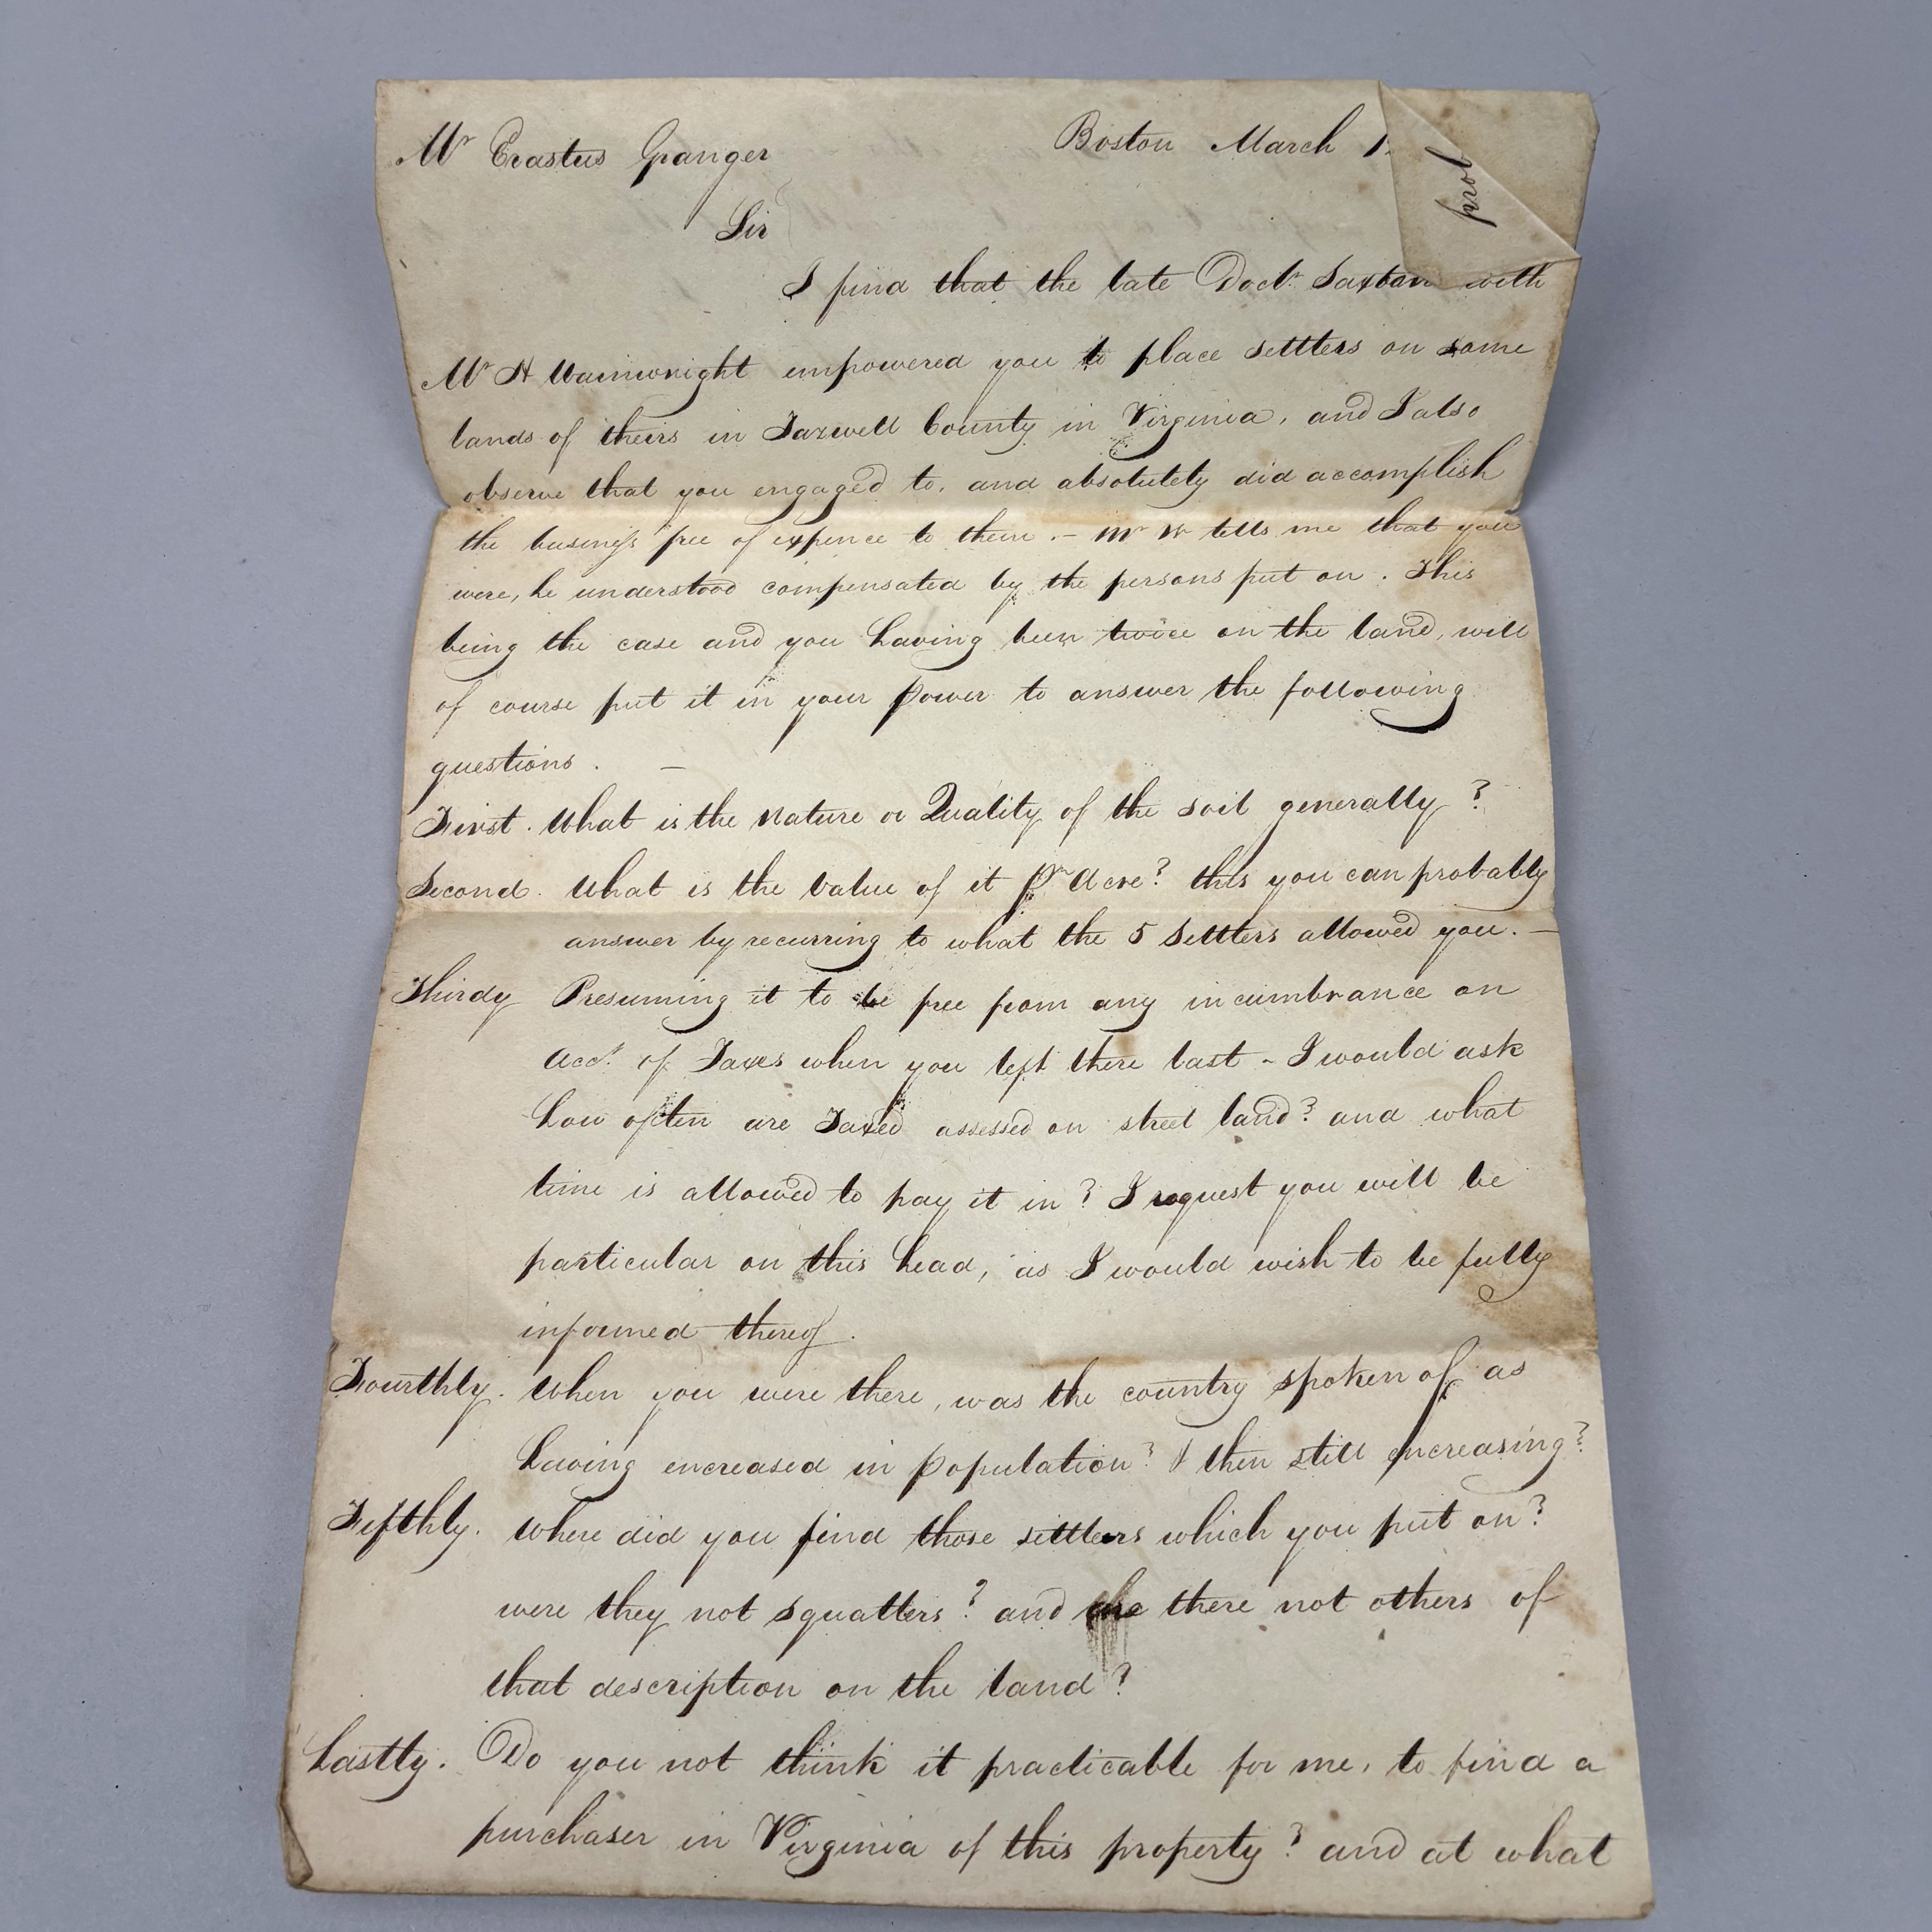 Mr Erastus Granger Boston March 1
prob
Sir
I find that the late Doctr. Saxton with
Mr H Wainwright empowered you to place settlers on some
lands of theirs in Tazwell County in Virginia, and I also
observe that you engaged to, and absolutely did accomplish
the business free of expence to them. – Mr W tells me that you
were, he understood compensated by the persons put on. This
being the case and you having been twice on the land, will
of course put it in your power to answer the following
questions. –
First. What is the Nature or Quality of the soil generally?
Second. What is the value of it Pr Acre? this you can probably
answer by recurring to what the 5 Settlers allowed you. –
Thirdy Presuming it to be free from any incumbrance on
Acct. of Taxes when you left there last – I would ask
how often are Taxed assessed on street land? and what
time is allowed to pay it in? I request you will be
particular on this head, as I would wish to be fully
informed thereof.
Fourthly. When you were there, was the country spoken of as
having encreased in population? & then still encreasing?
Fifthly. Where did you find those settlers which you put on?
were they not squatters? and are there not others of
that description on the land?
Lastly. Do you not think it practicable for me, to find a
purchaser in Virginia of this property? and at what